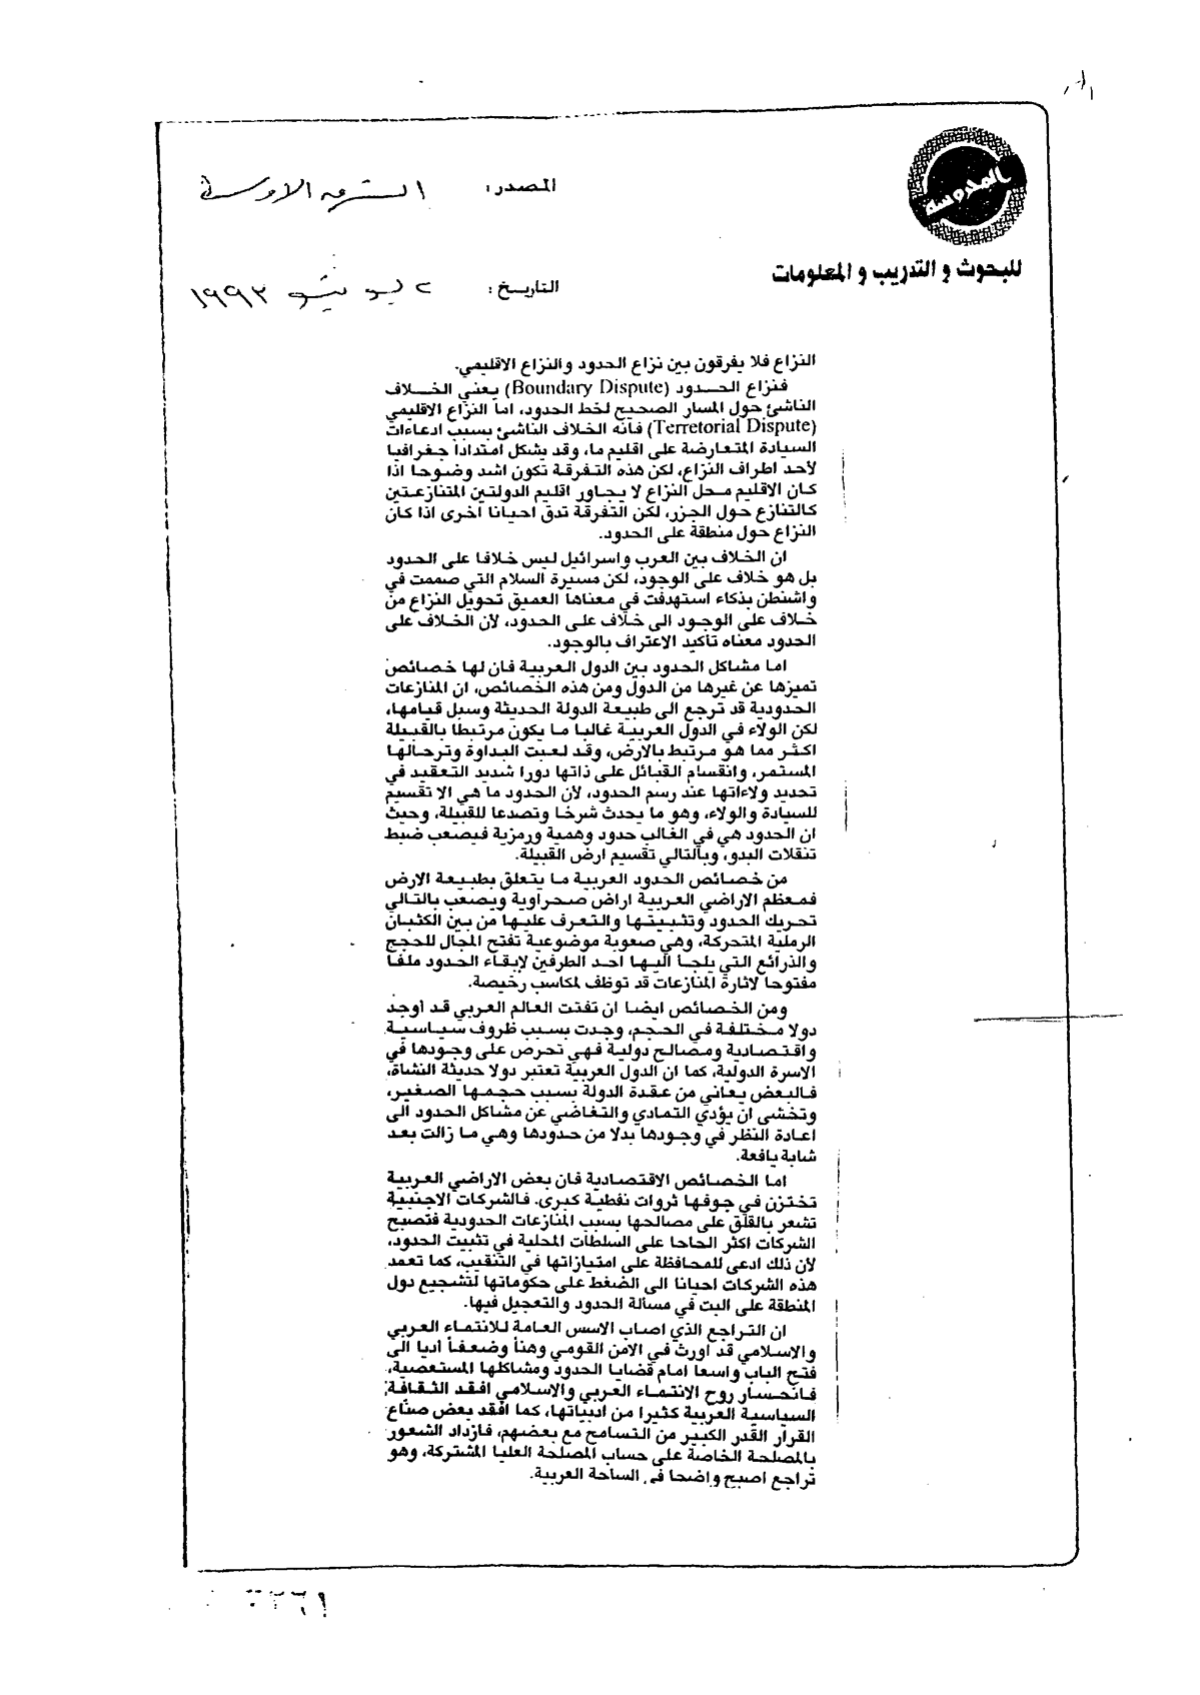 المدوسة
للبحوث و التدريب و المعلومات
المصدر: الشرق الاوسط
التاريخ: ٢ يونيو ١٩٩٣
النزاع فلا يفرقون بين نزاع الحدود والنزاع الاقليمي.
فنزاع الحدود (Boundary Dispute) يعني الخلاف
الناشئ حول المسار الصحيح لخط الحدود، اما النزاع الاقليمي
(Terretorial Dispute) فانه الخلاف الناشئ بسبب ادعاءات
السيادة المتعارضة على اقليم ما، وقد يشكل امتداداً جغرافيا
لاحد اطراف النزاع، لكن هذه التفرقة تكون اشد وضوحا اذا
كان الاقليم محل النزاع لا يجاور اقليم الدولتين المتنازعتين
كالتنازع حول الجزر، لكن التفرقة تدق احيانا اخرى اذا كان
النزاع حول منطقة على الحدود.
ان الخلاف بين العرب واسرائيل ليس خلافا على الحدود
بل هو خلاف على الوجود، لكن مسيرة السلام التي صممت في
واشنطن بذكاء استهدفت في معناها العميق تحويل النزاع من
خلاف على الوجود الى خلاف على الحدود، لأن الخلاف على
الحدود معناه تأكيد الاعتراف بالوجود.
اما مشاكل الحدود بين الدول العربية فان لها خصائص
تميزها عن غيرها من الدول ومن هذه الخصائص، ان المنازعات
الحدودية قد ترجع الى طبيعة الدولة الحديثة وسبل قيامها،
لكن الولاء في الدول العربية غالبا ما يكون مرتبطا بالقبيلة
اكثر مما هو مرتبط بالارض، وقد لعبت البداوة وترحالها
المستمر، وانقسام القبائل على ذاتها دورا شديد التعقيد في
تحديد ولاءاتها عند رسم الحدود، لأن الحدود ما هي الا تقسيم
للسيادة والولاء، وهو ما يحدث شرخا وتصدعا للقبيلة، وحيث
ان الحدود هي في الغالب حدود وهمية ورمزية فيصعب ضبط
تنقلات البدو، وبالتالي تقسيم ارض القبيلة.
من خصائص الحدود العربية ما يتعلق بطبيعة الارض
فمعظم الاراضي العربية اراض صحراوية ويصعب بالتالي
تحريك الحدود وتثبيتها والتعرف عليها من بين الكثبان
الرملية المتحركة، وهي صعوبة موضوعية تفتح المجال للحجج
والذرائع التي يلجأ اليها احد الطرفين لإبقاء الحدود ملفا
مفتوحا لاثارة المنازعات قد توظف لمكاسب رخيصة.
ومن الخصائص ايضا ان تفتت العالم العربي قد أوجد
دولا مختلفة في الحجم، وجدت بسبب ظروف سياسية
واقتصادية ومصالح دولية فهي تحرص على وجودها في
الاسرة الدولية، كما ان الدول العربية تعتبر دولا حديثة النشأة،
فالبعض يعاني من عقدة الدولة بسبب حجمها الصغير،
وتخشى ان يؤدي التمادي والتغاضي عن مشاكل الحدود الى
اعادة النظر في وجودها بدلا من حدودها وهي ما زالت بعد
شابة يافعة.
اما الخصائص الاقتصادية فان بعض الاراضي العربية
تختزن في جوفها ثروات نفطية كبرى. فالشركات الاجنبية
تشعر بالقلق على مصالحها بسبب المنازعات الحدودية فتصبح
الشركات اكثر الحاحا على السلطات المحلية في تثبيت الحدود،
لأن ذلك ادعى للمحافظة على امتيازاتها في التنقيب، كما تعمد
هذه الشركات احيانا الى الضغط على حكوماتها لتشجيع دول
المنطقة على البت في مسألة الحدود والتعجيل فيها.
ان التراجع الذي اصاب الاسس العامة للانتماء العربي
والاسلامي قد اورث في الامن القومي وهنأ وضعفاً أديا الى
فتح الباب واسعا امام قضايا الحدود ومشاكلها المستعصية،
فانحسار روح الانتماء العربي والاسلامي افقد الثقافة
السياسية العربية كثيرا من ادبياتها، كما افقد بعض صناع
القرار القدر الكبير من التسامح مع بعضهم، فازداد الشعور
بالمصلحة الخاصة على حساب المصلحة العليا المشتركة، وهو
تراجع اصبح واضحا في الساحة العربية.